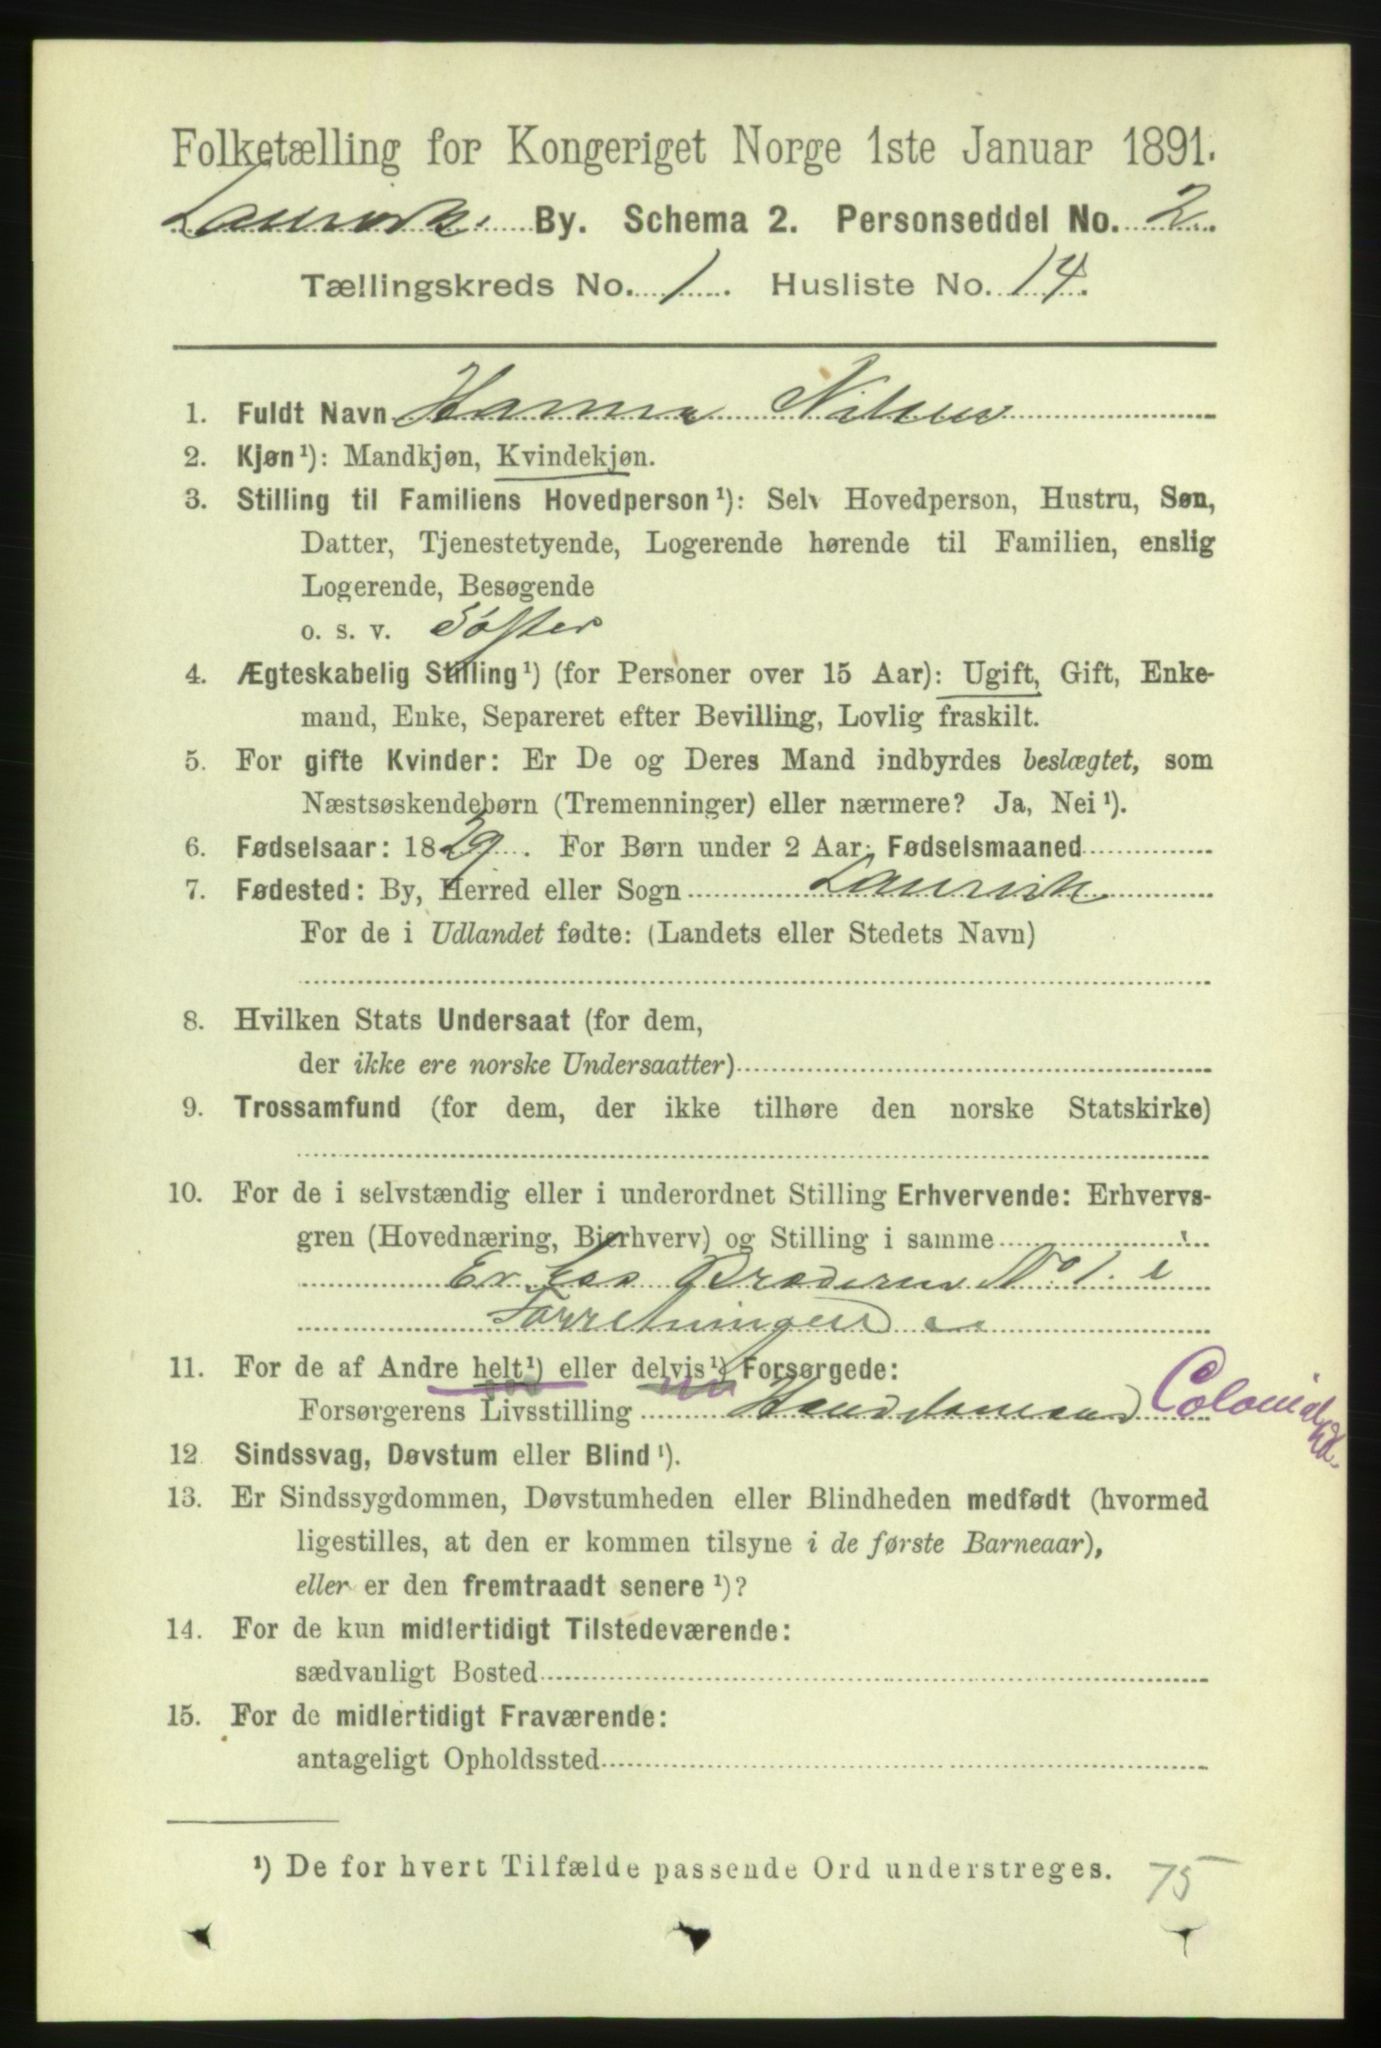 Folketælling for Kongeriget Norge 1ste Januar 1891.
Laurvik By. Schema 2. Personseddel No. 2.
Tællingskreds No. 1. Husliste No. 14.
1. Fuldt Navn Hanna Nilsen
2. Kjøn¹): Mandkjøn, Kvindekjøn.
3. Stilling til Familiens Hovedperson¹): Selv Hovedperson, Hustru, Søn,
Datter, Tjenestetyende, Logerende hørende til Familien, enslig
Logerende, Besøgende
o. s. v. Søster
4. Ægteskabelig Stilling¹) (for Personer over 15 Aar): Ugift, Gift, Enke-
mand, Enke, Separeret efter Bevilling, Lovlig fraskilt.
5. For gifte Kvinder: Er De og Deres Mand indbyrdes beslægtet, som
Næstsøskendebørn (Tremenninger) eller nærmere? Ja, Nei¹).
6. Fødselsaar: 1829. For Børn under 2 Aar: Fødselsmaaned
7. Fødested: By, Herred eller Sogn Laurvik
For de i Udlandet fødte: (Landets eller Stedets Navn)
8. Hvilken Stats Undersaat (for dem,
der ikke ere norske Undersaatter)
9. Trossamfund (for dem, der ikke tilhøre den norske Statskirke)
10. For de i selvstændig eller i underordnet Stilling Erhvervende: Erhvervs-
gren (Hovednæring, Bierhverv) og Stilling i samme
Er hos Broderen No 1. i
Forretningen
11. For de af Andre helt¹) eller delvis¹) Forsørgede:
Forsørgerens Livsstilling Handelsmand Colonial
12 Sindssvag, Døvstum eller Blind¹).
13. Er Sindssygdommen, Døvstumheden eller Blindheden medfødt (hvormed
ligestilles, at den er kommen tilsyne i de første Barneaar),
eller er den fremtraadt senere¹)?
14. For de kun midlertidigt Tilstedeværende:
sædvanligt Bosted
15. For de midlertidigt Fraværende:
antageligt Opholdssted
¹) De for hvert Tilfælde passende Ord understreges. 75